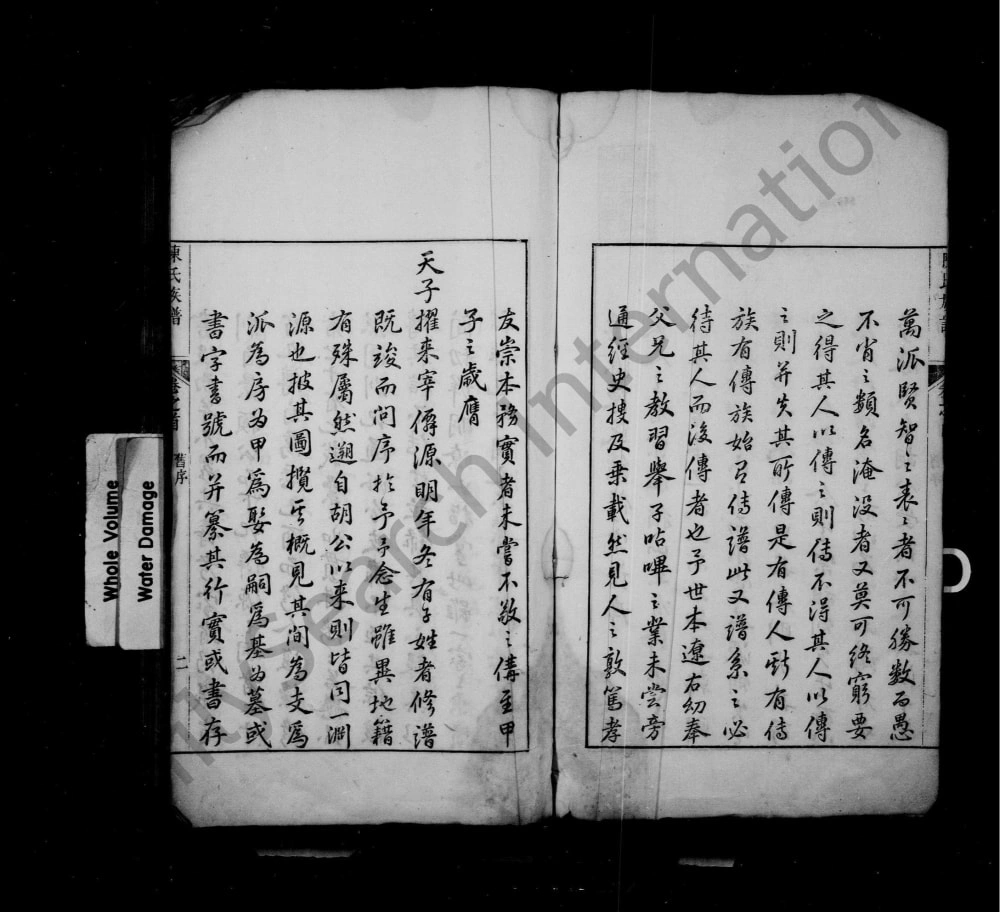 萬派賢智之表之者不可勝数而愚
不肖之類名淹没者又莫可終窮要
之得其人以傳之則傳不得其人以傳
之則并失其所傳是有傳人斯有傳
族有傳族始有傳譜此又譜系之必
待其人而後傳者也予世本遼右幼奉
父兄之教習舉子呫嗶之業未嘗旁
通經史搜及乗載然見人之敦篤孝
友崇本務實者未嘗不敬之僃至甲
子之歲膺
天子擢来宰僻源明年冬有子姓者修譜
既竣而問序於予予念生雖異地籍
有殊屬然遡自胡公以来則皆同一淵
源也披其圖攬其概見其间為支為
派為房为甲為娶為嗣為基为墓或
書字書號而并纂其行實或書存
陳氏族譜
卷之首
舊序
二
Whole Volume
Water Damage
FamilySearch International